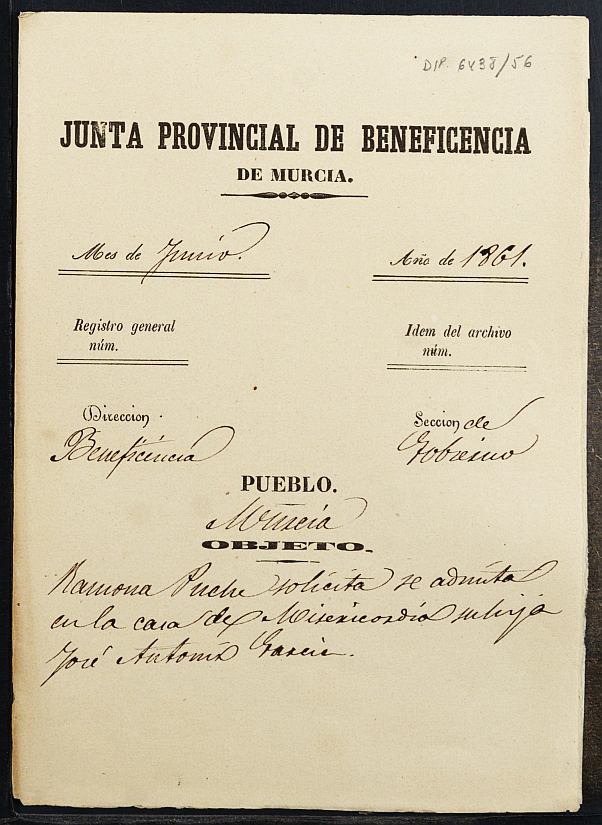 DIP. 6438/56
JUNTA PROVINCIAL DE BENEFICENCIA
DE MURCIA.
Mes de Junio.
Año de 1861.
Registro general
núm.
Idem del archivo
núm.
Direccion
Beneficencia
Seccion de
Gobierno
PUEBLO.
Murcia
OBJETO.
Ramona Puche solicita se admita
en la casa de Misericordia su hijo
José Antonio Garcia.